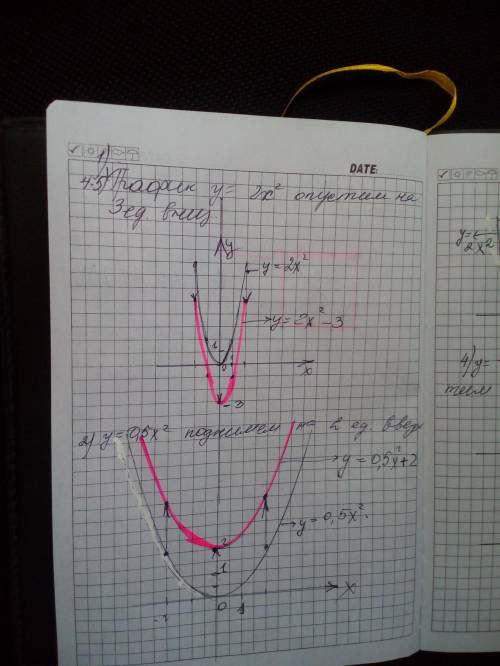 DATE:
1)
График y = 2x² опустим на
3 ед. вниз
y
y = 2x²
y = 2x² - 3
1
0
x
-3
2) y = 0,5x² поднимем на 2 ед. вверх
y = 0,5x² + 2
y = 0,5x²
2
1
x
0
1
y =
2x²
4) y =